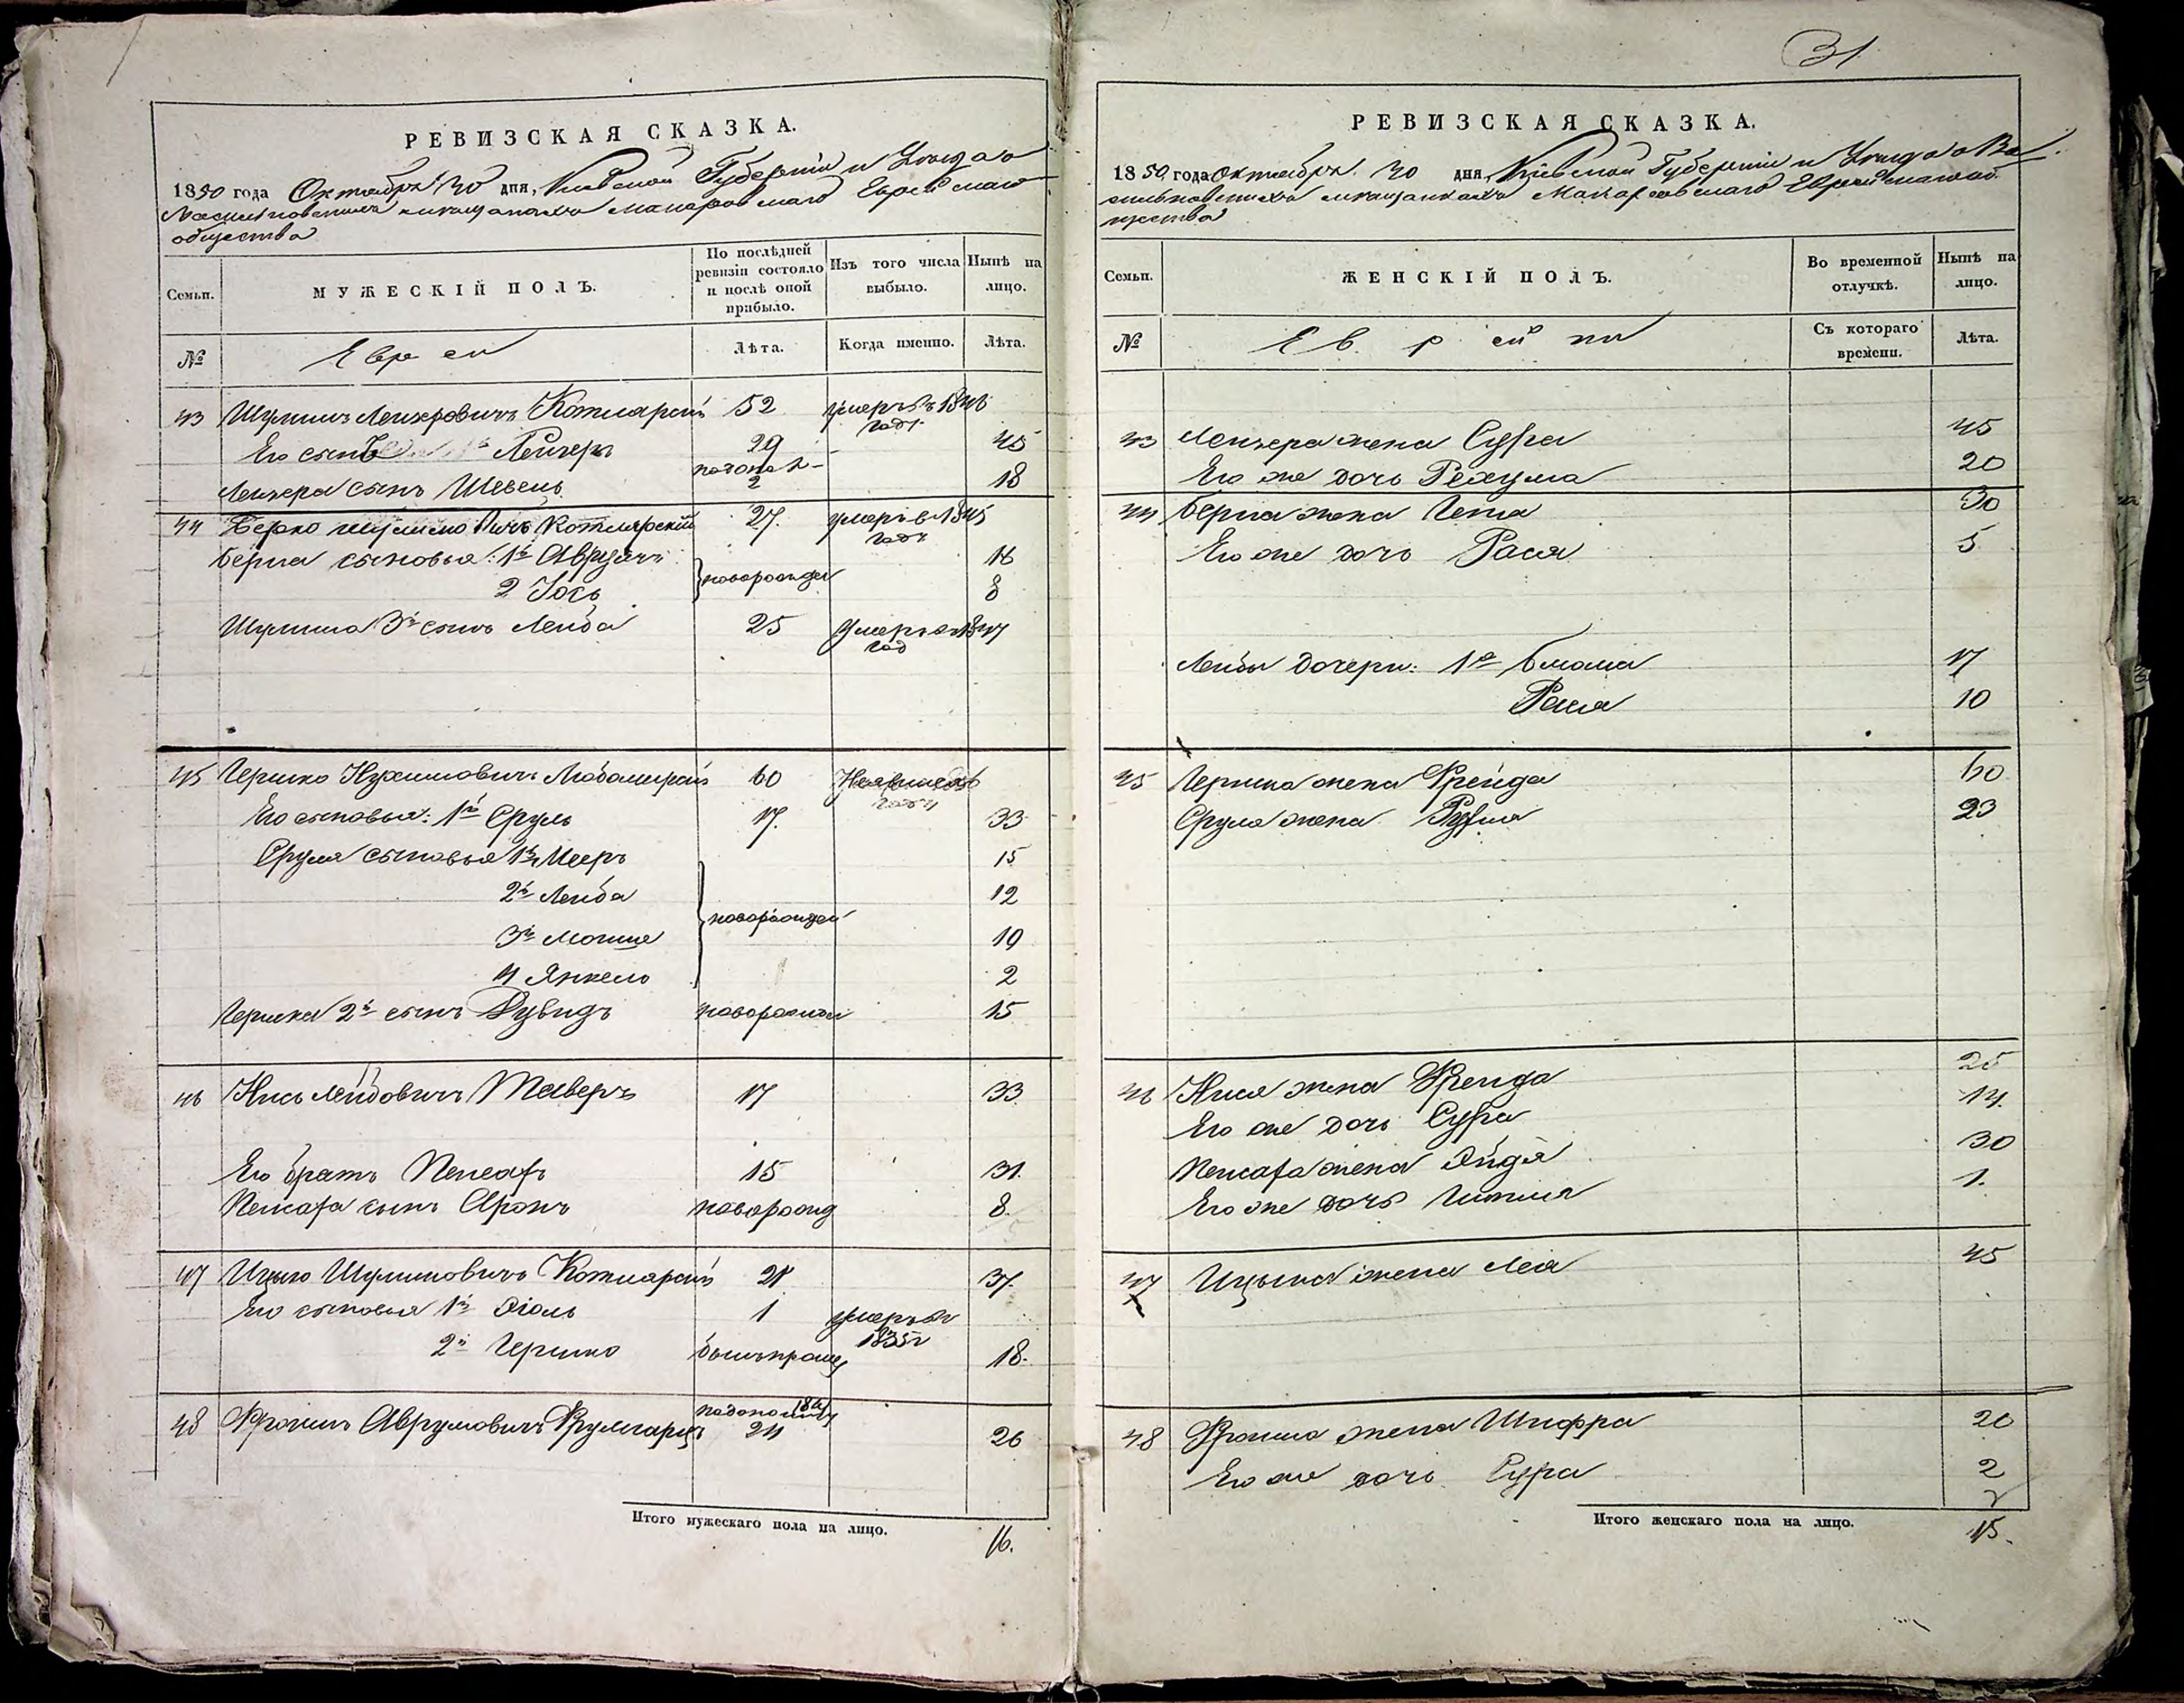 31
РЕВИЗСКАЯ СКАЗКА.
1850 года Октября 30 дня, Киевской Губернии и Уезда о
Васильковскихъ мещанахъ Макаровскаго Еврейскаго
общества
Семьи. МУЖЕСКІЙ ПОЛЪ. По послѣдней ревизіи состояло и послѣ оной прибыло. Изъ того числа выбыло. Нынѣ на лицо.
№ Евреи Лѣта. Когда именно. Лѣта.
43 Шулимъ Лейзеровичъ Котлярскій 52 умеръ въ 1846 году
Его сынъ Лейзеръ 29 45
Лейзера сынъ Шевель 2 18
44 Берко Шулимовичъ Котлярскій 27. умеръ в 1845 году
Берка сыновья: 1й Аврумъ 16
2 Іось новорожден 8
Шулима 3й сынъ Лейба 25 умеръ в 1847 год
45 Гершко Нухимовичъ 60
Его сыновья: 1й Сруль 17. 33
Сруля сыновья 1й Мееръ 15
2й Лейба 12
новорожден
3й Мошко 10
4 Янкель 2
Гершка 2й сынъ Дувидъ новорожден 15
46 Нись Лейбовичъ Тетверъ 17 33
Его братъ Пейсахъ 15 31.
Пейсаха сынъ Аронъ новорожд 8.
47 Ицько Шулимовичъ Котлярскій 21 37.
Его сыновья 1й Юоль 1 умеръ въ 1835 г
2й Гершко 18.
48 Фроимъ Аврумовичъ 24 26
Итого мужескаго пола на лицо. 16.
РЕВИЗСКАЯ СКАЗКА.
1850 года Октября 30 дня, Киевской Губернии и Уезда о Ва
сильковскихъ мещанкахъ Макаровскаго Еврейскаго об
щества
Семьи. ЖЕНСКІЙ ПОЛЪ. Во временной отлучкѣ. Нынѣ на лицо.
№ Еврейки Съ котораго времени. Лѣта.
43 Лейзера жена Сура 45
Его же дочь Рехума 20
44 Берка жена Гета 30
Его же дочь Рася 5
Лейбы дочери: 1я Блюма 17
Рася 10
45 Гершка жена Фрейда 60
Сруля жена Рухля 23
46 Нися жена Фрейда 25
Его же дочь Сура 14.
Пейсаха жена Эйдя 30
Его же дочь Гитля 1.
47 Ицька жена Лея 45
48 Фроима жена Шифра 20
Его же дочь Сура 2
Итого женскаго пола на лицо. 15.